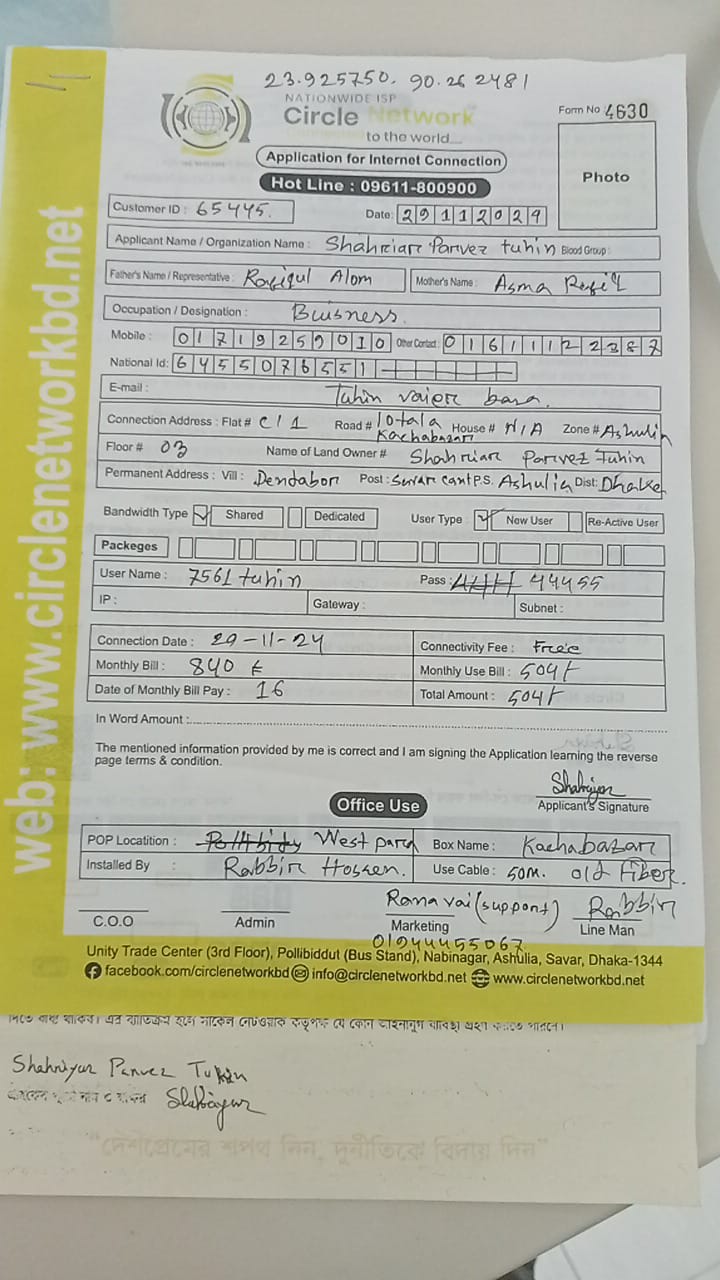 23.925750. 90.262481
NATIONWIDE ISP
Circle Network
to the world....
Form No 4630
Application for Internet Connection
Photo
Hot Line : 09611-800900
Customer ID : 65445.
Date: 29112024
Applicant Name / Organization Name : Shahriar Parvez tuhin Blood Group :
Father's Name / Representative : Rafiqul Alom Mother's Name : Asma
Occupation / Designation : Buisness.
Mobile : 01719259010 Other Contact : 01611122387
National Id: 6455076551
E-mail : Tuhin vaier basa.
Connection Address : Flat # C/1 Road # 10tala Kachabazar House # N/A Zone # Ashulia
Floor # 03 Name of Land Owner # Shahriar Parvez Tuhin
Permanent Address : Vill : Dendabor Post : Savar Cant P.S. Ashulia Dist: Dhaka
Bandwidth Type Shared Dedicated User Type : New User Re-Active User
Packeges
User Name : 7561tuhin Pass : 44455
IP : Gateway : Subnet :
Connection Date : 29-11-24 Connectivity Fee : Free
Monthly Bill : 840 ৳ Monthly Use Bill : 504/-
Date of Monthly Bill Pay : 16 Total Amount : 504/-
In Word Amount :
The mentioned information provided by me is correct and I am signing the Application learning the reverse
page terms & condition.
Shahriyar
Applicant's Signature
Office Use
POP Locatition : West para Box Name : Kachabazar
Installed By : Rabbir Hossen. Use Cable : 50m. old Fiber.
Rana vai (support) Rabbir
C.O.O Admin Marketing Line Man
01944455067
Unity Trade Center (3rd Floor), Pollibiddut (Bus Stand), Nabinagar, Ashulia, Savar, Dhaka-1344
facebook.com/circlenetworkbd info@circlenetworkbd.net www.circlenetworkbd.net
web: www.circlenetworkbd.net
Shahriyar Parvez Tuhin
Shahriyar
"দেশপ্রেমের শপথ নিন, দুর্নীতিকে বিদায় দিন"